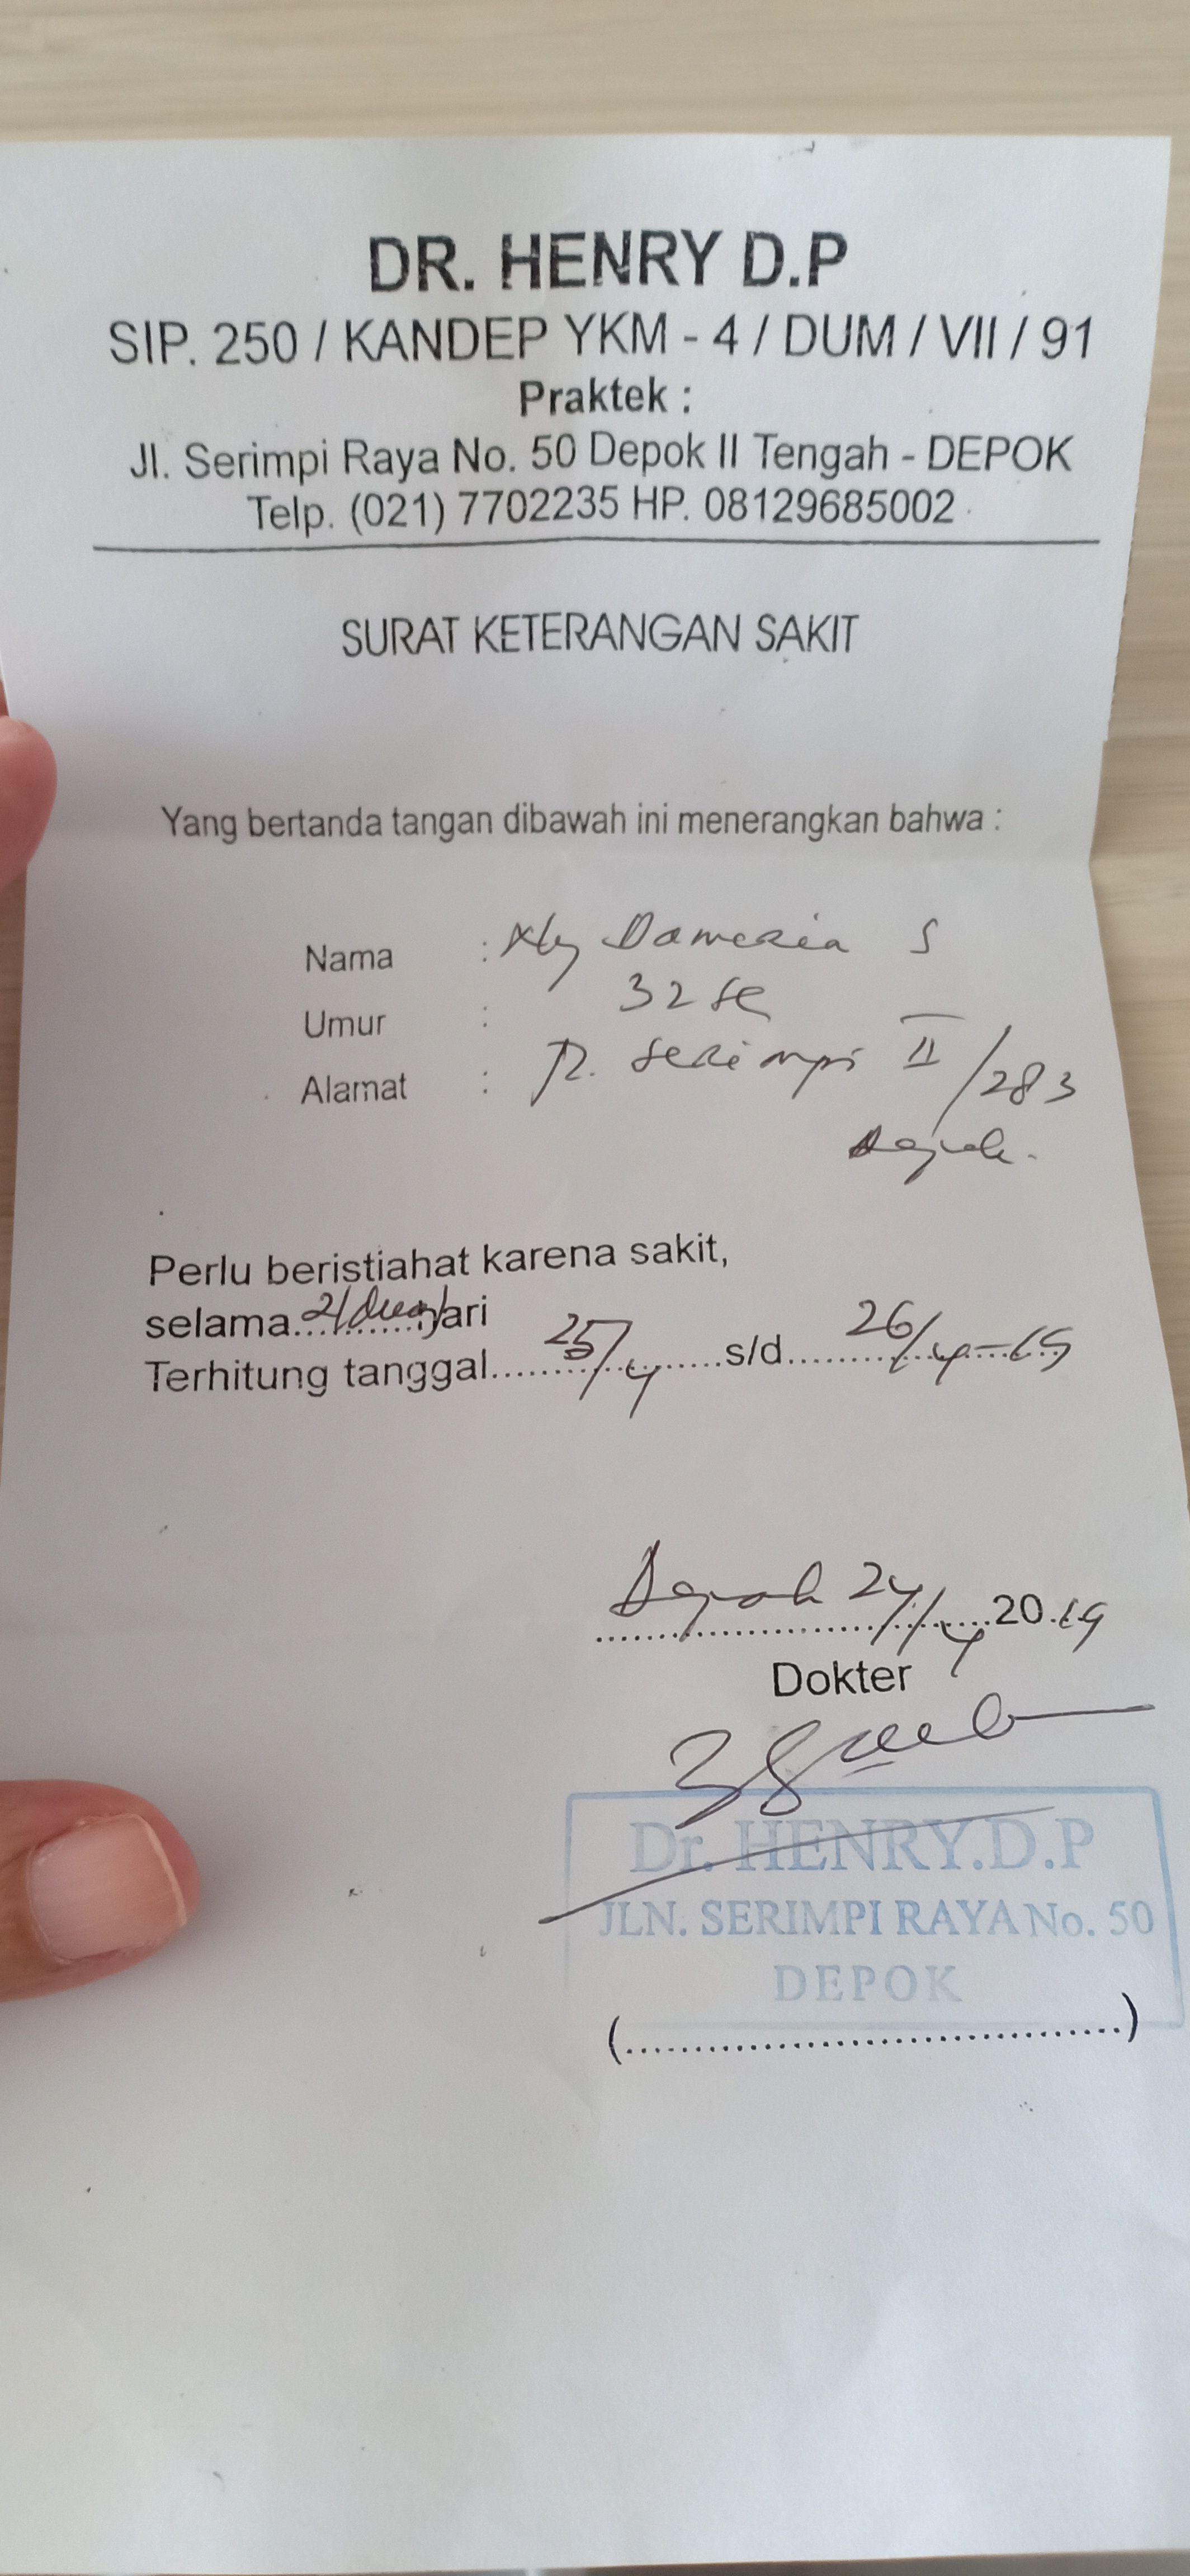 DR. HENRY D.P
SIP. 250 / KANDEP YKM - 4 / DUM / VII / 91
Praktek :
Jl. Serimpi Raya No. 50 Depok II Tengah - DEPOK
Telp. (021) 7702235 HP. 08129685002
SURAT KETERANGAN SAKIT
Yang bertanda tangan dibawah ini menerangkan bahwa :
Nama : Dameria S
Umur : 32
Alamat : Jl. Serimpi II/283
Depok.
Perlu beristiahat karena sakit,
selama 2/dua hari
Terhitung tanggal 25/4 s/d 26/4-19
Depok 24/4 2019
Dokter
Dr. HENRY.D.P
JLN. SERIMPI RAYA No. 50
DEPOK
(........................................)